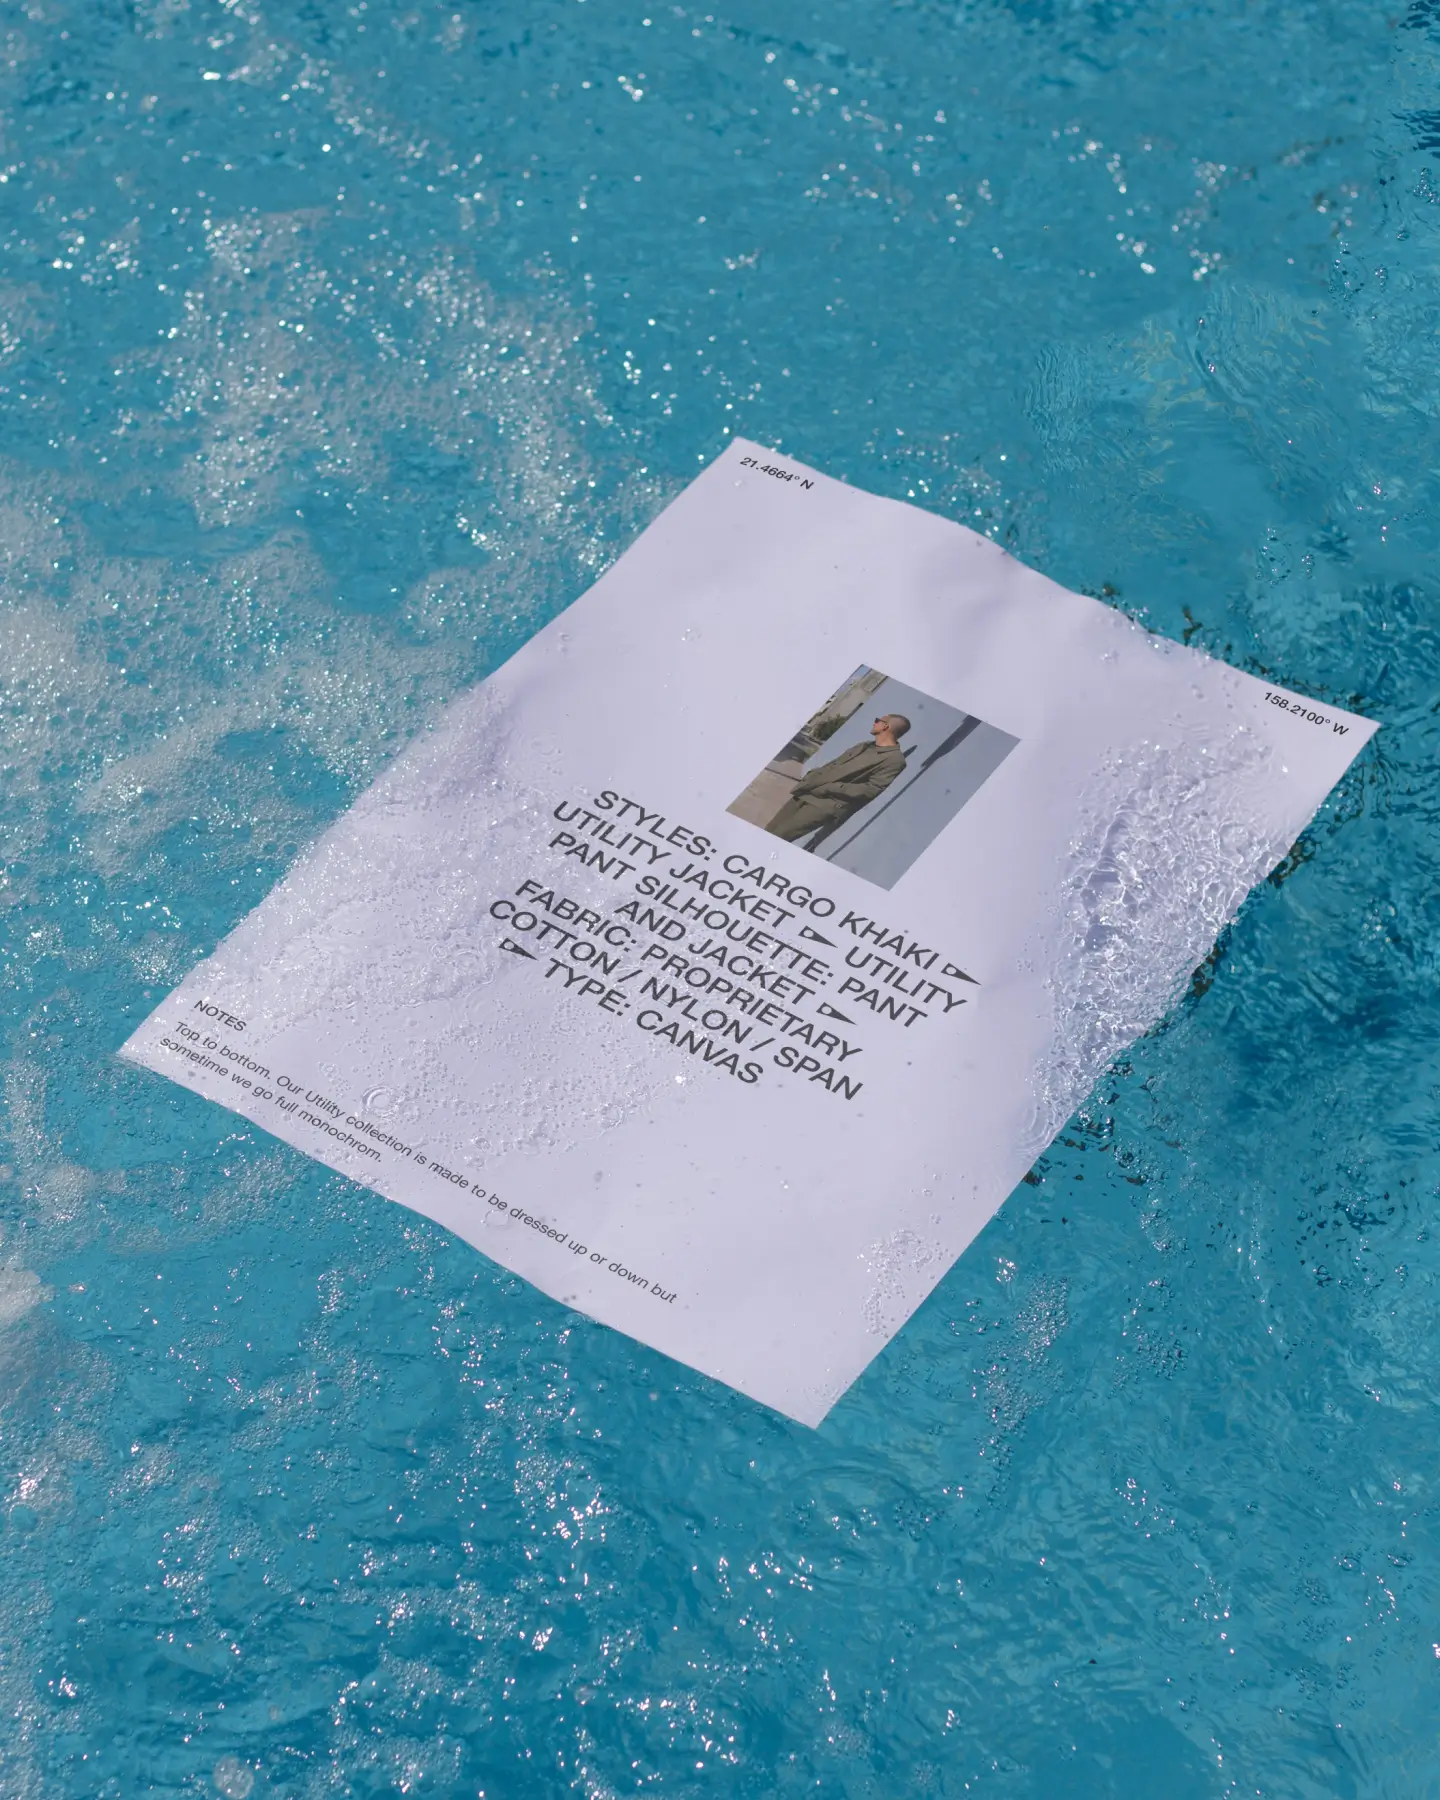 21.4664° N
158.2100° W
STYLES: CARGO KHAKI
UTILITY JACKET UTILITY
PANT SILHOUETTE: PANT
AND JACKET
FABRIC: PROPRIETARY
COTTON / NYLON / SPAN
TYPE: CANVAS
NOTES
Top to bottom. Our Utility collection is made to be dressed up or down but
sometime we go full monochrom.